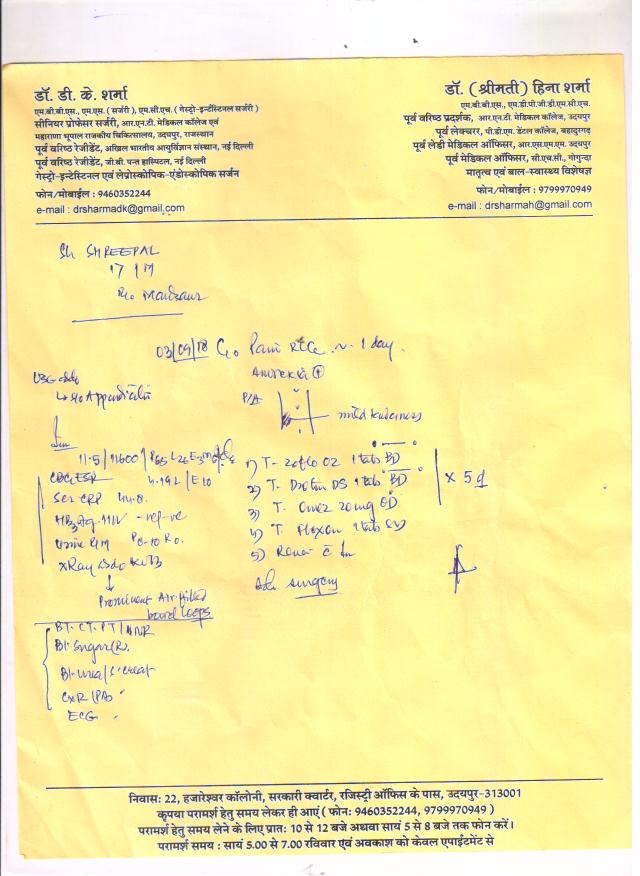 डॉ. डी. के. शर्मा
एम.बी.बी.एस., एम.एस. ( सर्जरी ), एम.सी.एच. ( गेस्ट्रो-इन्टेस्टिनल सर्जरी )
सीनियर प्रोफेसर सर्जरी, आर.एन.टी. मेडिकल कॉलेज एवं
महाराणा भूपाल राजकीय चिकित्सालय, उदयपुर, राजस्थान
पूर्व वरिष्ठ रेजीडेंट, अखिल भारतीय आयुर्विज्ञान संस्थान, नई दिल्ली
पूर्व वरिष्ठ रेजीडेंट, जी.बी. पन्त हास्पिटल, नई दिल्ली
गेस्ट्रो-इन्टेस्टिनल एवं लेप्रोस्कोपिक-एंडोस्कोपिक सर्जन
फोन/मोबाईल : 9460352244
e-mail : drsharmadk@gmail.com
डॉ. (श्रीमती) हिना शर्मा
एम.बी.बी.एस., एम.डी.पी.जी.डी.एम.सी.एच.
पूर्व वरिष्ठ प्रदर्शक, आर.एन.टी. मेडिकल कॉलेज, उदयपुर
पूर्व लेक्चरर, पी.डी.एम. डेंटल कॉलेज, बहादुरगढ़
पूर्व लेडी मेडिकल ऑफिसर, आर.एस.एम.एम. उदयपुर
पूर्व मेडिकल ऑफिसर, सी.एच.सी., गोगुन्दा
मातृत्व एवं बाल-स्वास्थ्य विशेषज्ञ
फोन/मोबाईल : 9799970949
e-mail : drsharmah@gmail.com
Sh SHREEPAL
17 / M
R/o Mandsaur
03/09/18 C/o Pain 1 day.
Anorexia +
P/A
mild tenderness
USG abdo
Appendicitis
11.5 / 11600 / P65 L26
CBC ESR 4.19L / E10
Ser CRP 44.8
HBsAg. HIV -ve
Urine R/M
X Ray abdo KUB
Prominent Air filled
bowel loops
1) T- Zoflo OZ 1 tab BD
2) T. Drotin DS 1 tab BD
3) T. Omez 20mg OD
4) T. Flexon 1 tab
5)
x 5 d
Adv surgery
BT. CT. PT / INR
Bl. Sugar (R)
Bl. Urea / S. creat
CXR (PA)
ECG
निवास: 22, हजारेश्वर कॉलोनी, सरकारी क्वार्टर, रजिस्ट्री ऑफिस के पास, उदयपुर-313001
कृपया परामर्श हेतु समय लेकर ही आएं ( फोन: 9460352244, 9799970949 )
परामर्श हेतु समय लेने के लिए प्रात: 10 से 12 बजे अथवा सायं 5 से 8 बजे तक फोन करें।
परामर्श समय : सायं 5.00 से 7.00 रविवार एवं अवकाश को केवल एपाईंटमेंट से